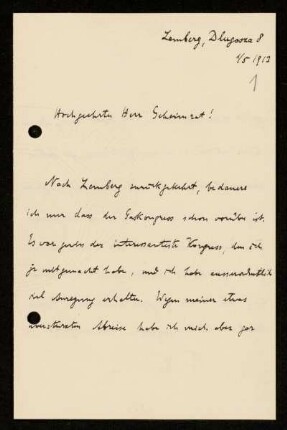 Lemberg, Dlugosza 8
4/5 1912
1
Hochgeehrter Herr Geheimrat!
Nach Lemberg zurückgekehrt, bedauere
ich nur dass der Gaskongress schon vorüber ist.
Es war der interessanteste Kongress, den ich
je mitgemacht habe, und ich habe ausserordentlich
viel Anregung erhalten. Wegen meiner etwas
Abreise habe ich mich aber gar